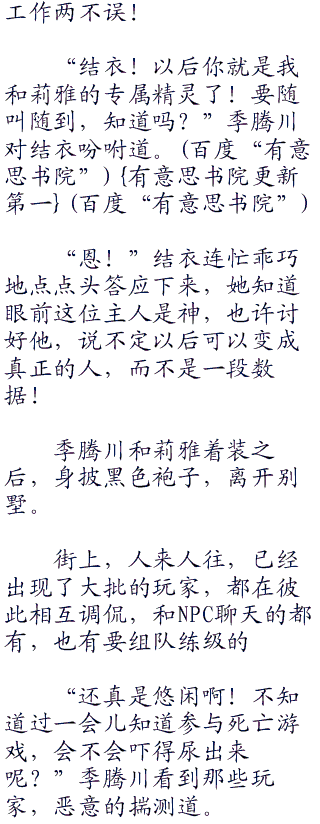 工作两不误！
“结衣！以后你就是我
和莉雅的专属精灵了！要随
叫随到，知道吗？”季腾川
对结衣吩咐道。(百度“有意
思书院”) {有意思书院更新
第一} (百度“有意思书院”)
“恩！”结衣连忙乖巧
地点点头答应下来，她知道
眼前这位主人是神，也许讨
好他，说不定以后可以变成
真正的人，而不是一段数
据！
季腾川和莉雅着装之
后，身披黑色袍子，离开别
墅。
街上，人来人往，已经
出现了大批的玩家，都在彼
此相互调侃，和NPC聊天的都
有，也有要组队练级的
“还真是悠闲啊！不知
道过一会儿知道参与死亡游
戏，会不会吓得尿出来
呢？”季腾川看到那些玩
家，恶意的揣测道。